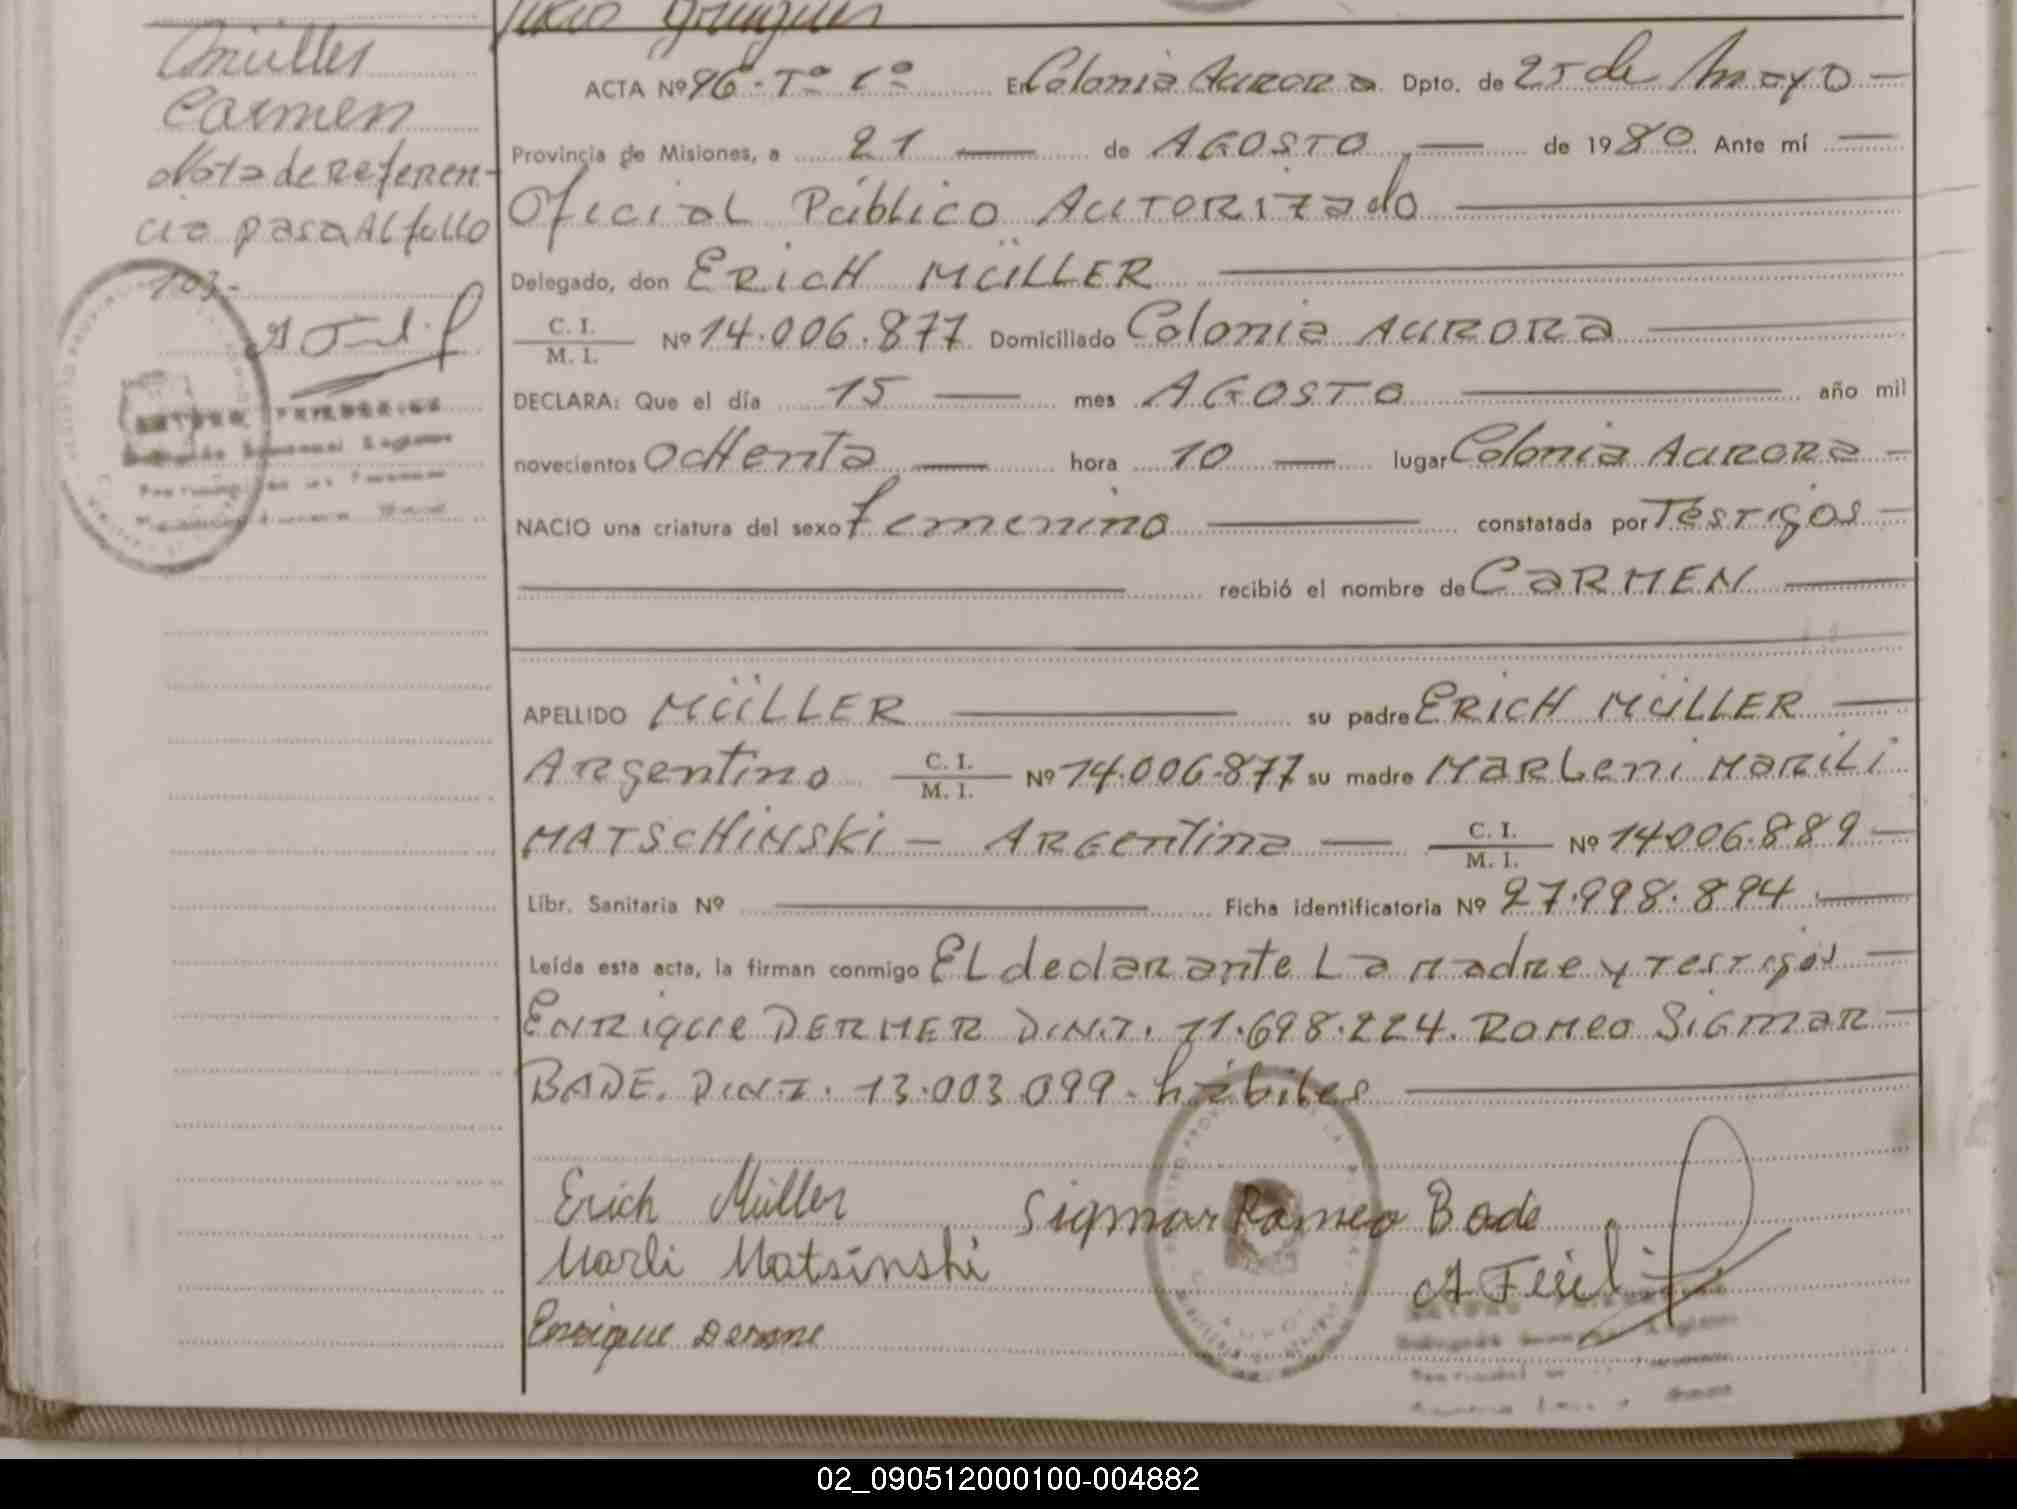 Müller
Carmen
Nota de referen-
cia para Al folio
103-
ACTA Nº 96 - Tº 1º En Colonia Aurora Dpto. de 25 de Mayo —
Provincia de Misiones, a 21 — de AGOSTO — de 1980 Ante mí —
Oficial Público Autorizado —
Delegado, don ERICH MÜLLER —
C. I. / M. I. Nº 14.006.877 Domiciliado Colonia AURORA —
DECLARA: Que el día 15 — mes AGOSTO — año mil
novecientos OcHenta — hora 10 — lugar Colonia Aurora —
NACIO una criatura del sexo femenino — constatada por Testigos —
— recibió el nombre de CARMEN —
APELLIDO MÜLLER — su padre ERICH MÜLLER —
Argentino C. I. / M. I. Nº 14.006.877 su madre MARLeni MARiLi
MATSCHINSKi — ARGentina — C. I. / M. I. Nº 14006.889 —
Libr. Sanitaria Nº — Ficha identificatoria Nº 27.998.894 —
Leída esta acta, la firman conmigo EL declarante La madre y testigos —
ENRique DERMER D.N.I. 11.698.224. ROMEO SIGMAR —
BADE. D.N.I. 13.003.099 - hábiles —
Erich Müller Sigmar Romeo Bade
Marli Matsinski
Enrique Derme
02_090512000100-004882